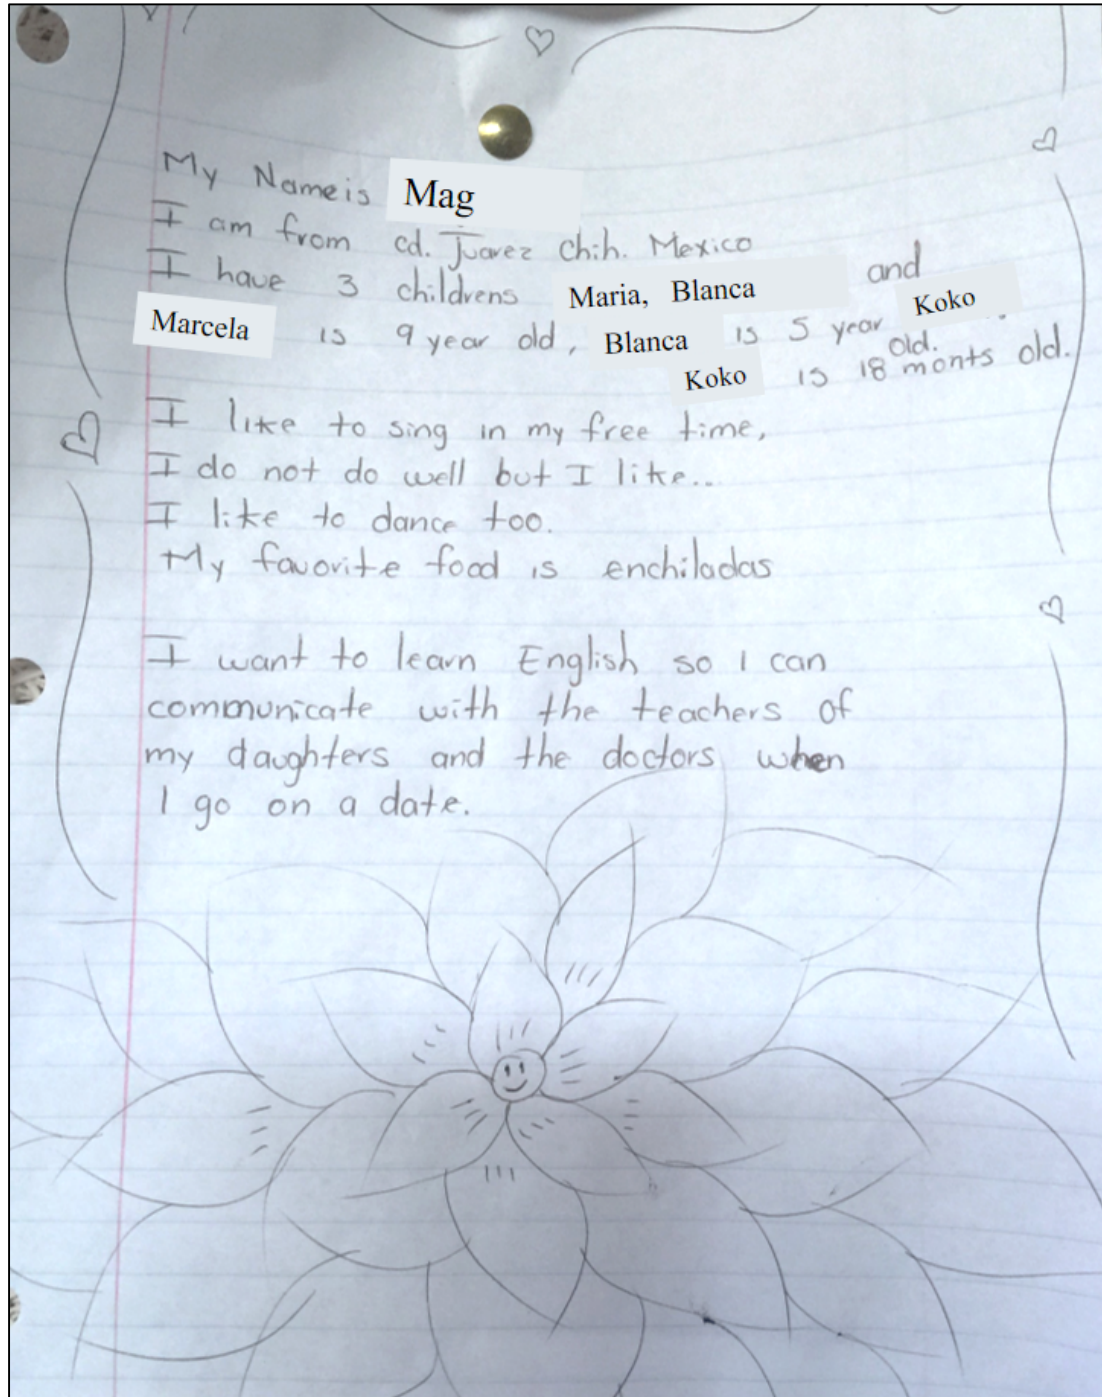 My Name is Mag
I am from cd. Juarez Chih. Mexico
I have 3 childrens Maria, Blanca and Koko
Marcela is 9 year old, Blanca is 5 year old.
Koko is 18 monts old.
I like to sing in my free time,
I do not do well but I like..
I like to dance too.
My favorite food is enchiladas
I want to learn English so I can
communicate with the teachers of
my daughters and the doctors when
I go on a date.